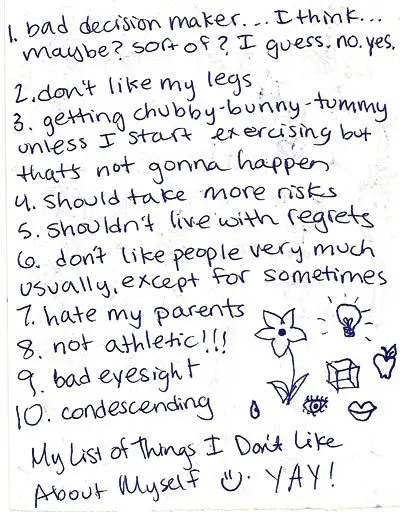 1. bad decision maker... I think...
maybe? sort of? I guess. no. yes.
2. don't like my legs
3. getting chubby-bunny-tummy
unless I start exercising but
that's not gonna happen
4. should take more risks
5. shouldn't live with regrets
6. don't like people very much
usually, except for sometimes
7. hate my parents
8. not athletic!!!
9. bad eyesight
10. condescending
My List of Things I Don't Like
About Myself ☺. YAY!